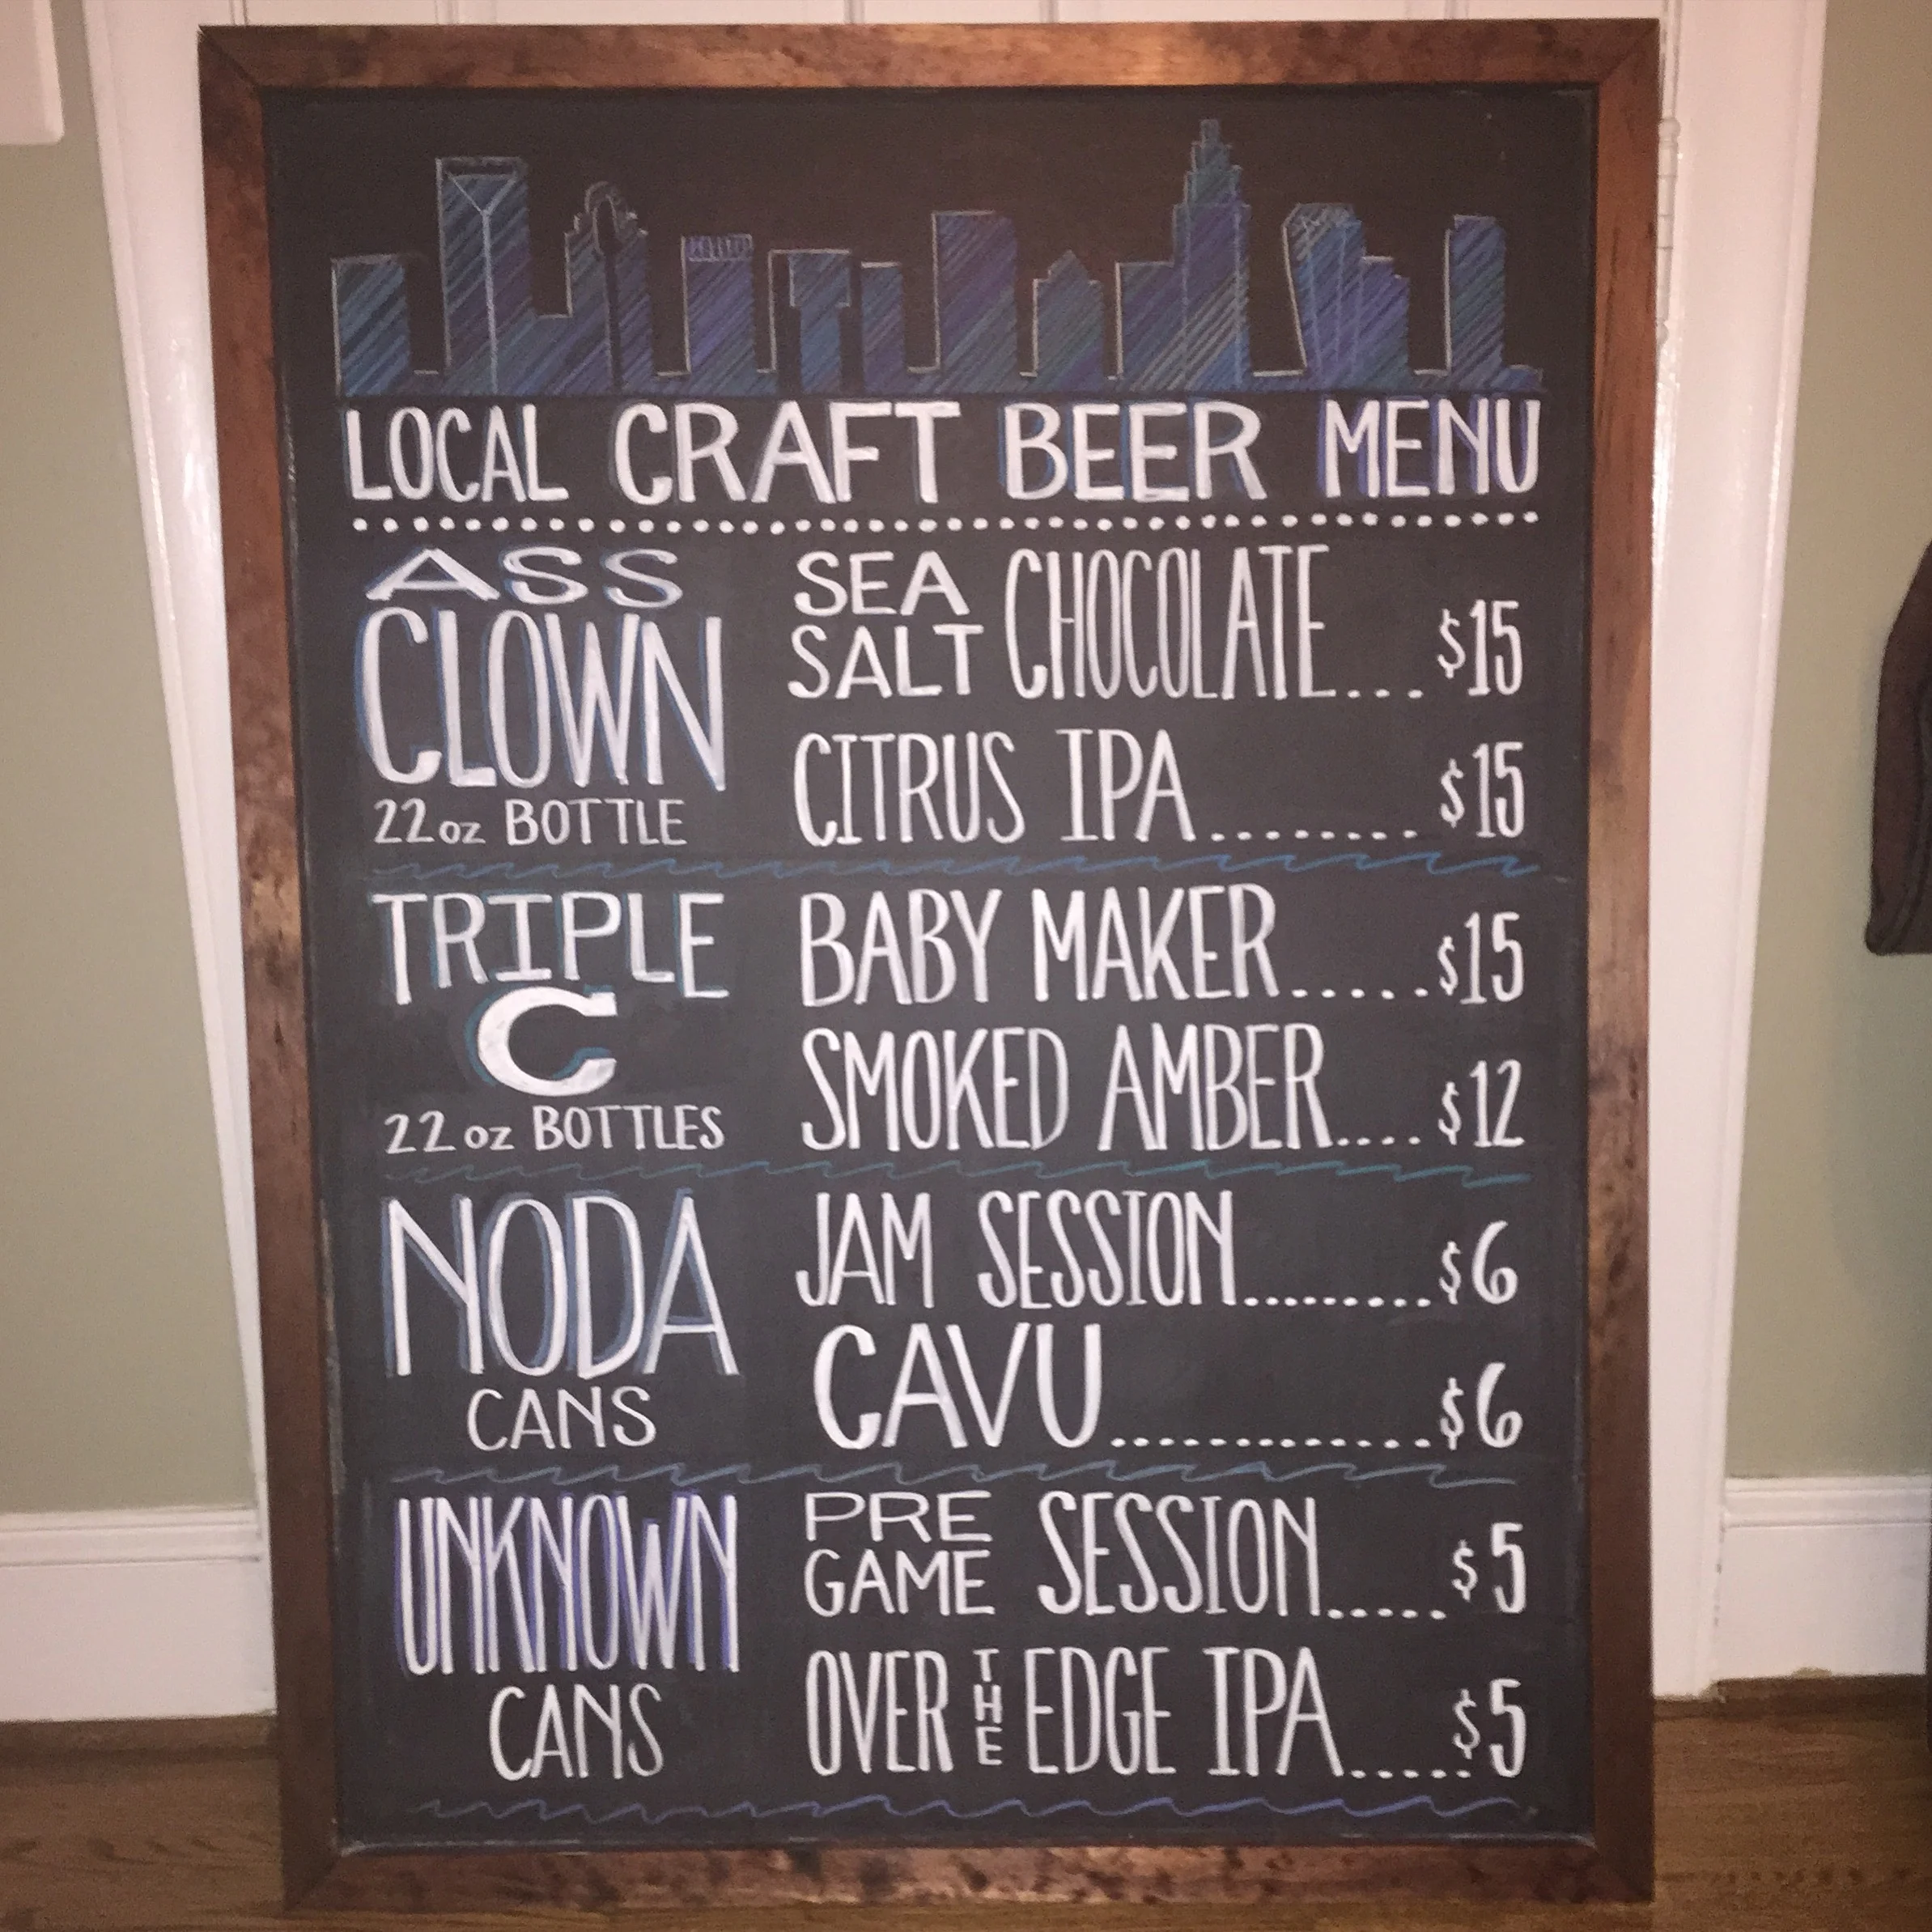 LOCAL CRAFT BEER MENU
ASS
CLOWN
22oz BOTTLE
SEA
SALT CHOCOLATE...$15
CITRUS IPA........$15
TRIPLE
C
22oz BOTTLES
BABY MAKER.....$15
SMOKED AMBER....$12
NODA
CANS
JAM SESSION.........$6
CAVU.............$6
UNKNOWN
CANS
PRE
GAME SESSION.....$5
OVER THE EDGE IPA.....$5